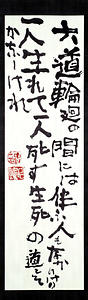 六道輪廻の間には伴ふ人も無かりけり
一人生れて一人死す生死の道こそ
かなしけれ